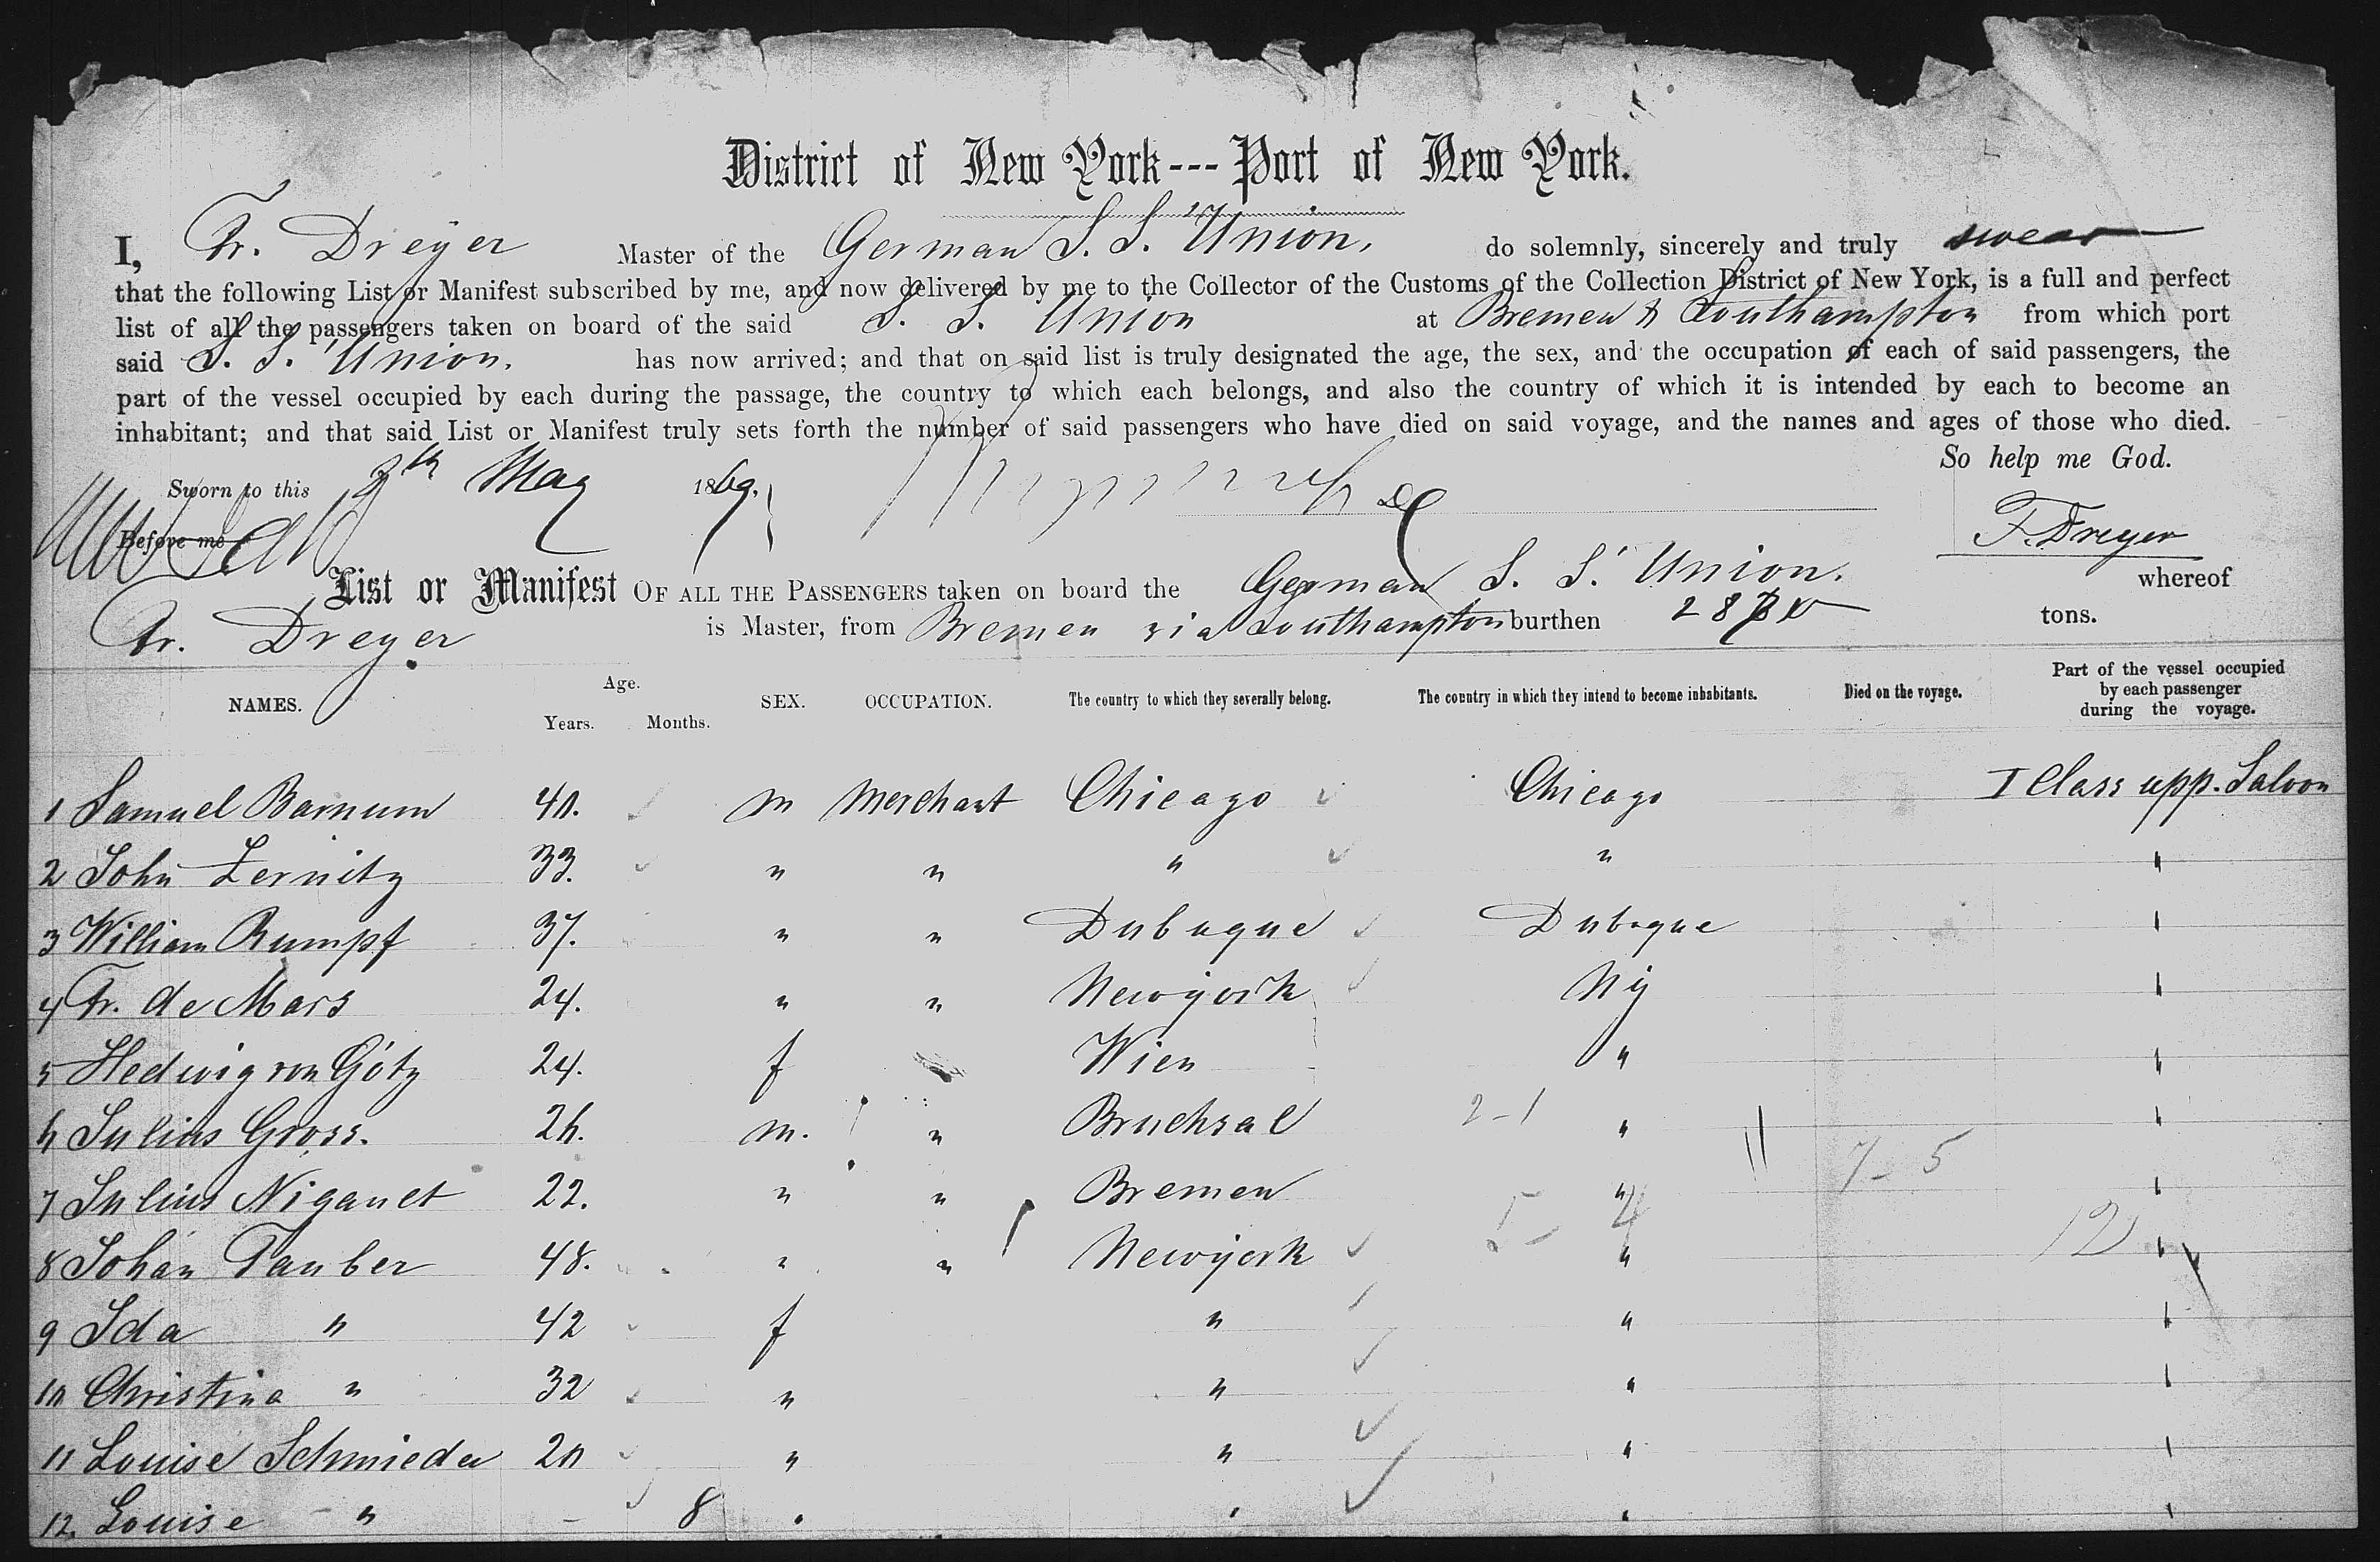 District of New York --- Port of New York.
I, Fr. Dreyer Master of the German S. S. Union, do solemnly, sincerely and truly swear
that the following List or Manifest subscribed by me, and now delivered by me to the Collector of the Customs of the Collection District of New York, is a full and perfect
list of all the passengers taken on board of the said S. S. Union at Bremen & Southampton from which port
said S. S. Union. has now arrived; and that on said list is truly designated the age, the sex, and the occupation of each of said passengers, the
part of the vessel occupied by each during the passage, the country to which each belongs, and also the country of which it is intended by each to become an
inhabitant; and that said List or Manifest truly sets forth the number of said passengers who have died on said voyage, and the names and ages of those who died.
So help me God.
Sworn to this May 1869,
Before me
F. Dreyer
List or Manifest OF ALL THE PASSENGERS taken on board the German S. S. Union. whereof
Fr. Dreyer is Master, from Bremen via Southampton burthen tons.
NAMES. Age. Years. Months. SEX. OCCUPATION. The country to which they severally belong. The country in which they intend to become inhabitants. Died on the voyage. Part of the vessel occupied by each passenger during the voyage.
1 Samuel Barnum 40. m Merchant Chicago Chicago I Class upp. Saloon
2 John Zernitz 33. " " " " "
3 William Rumpf 37. " " Dubuque Dubuque "
4 Fr. de Mars 24. " " Newyork Ny "
5 Hedwig von Götz 24. f Wien " "
6 Julius Gross. 26. m. " Bruchsal " "
7 Julius 22. " " Bremen " "
8 Johan Tauber 48. " " Newyork " "
9 Ida " 42 f " " "
10 Christina " 32 " " " "
11 Louise Schmieder 20 " " " "
12. Louise " - 8 " " " "
2-1
7-5
5-4
12